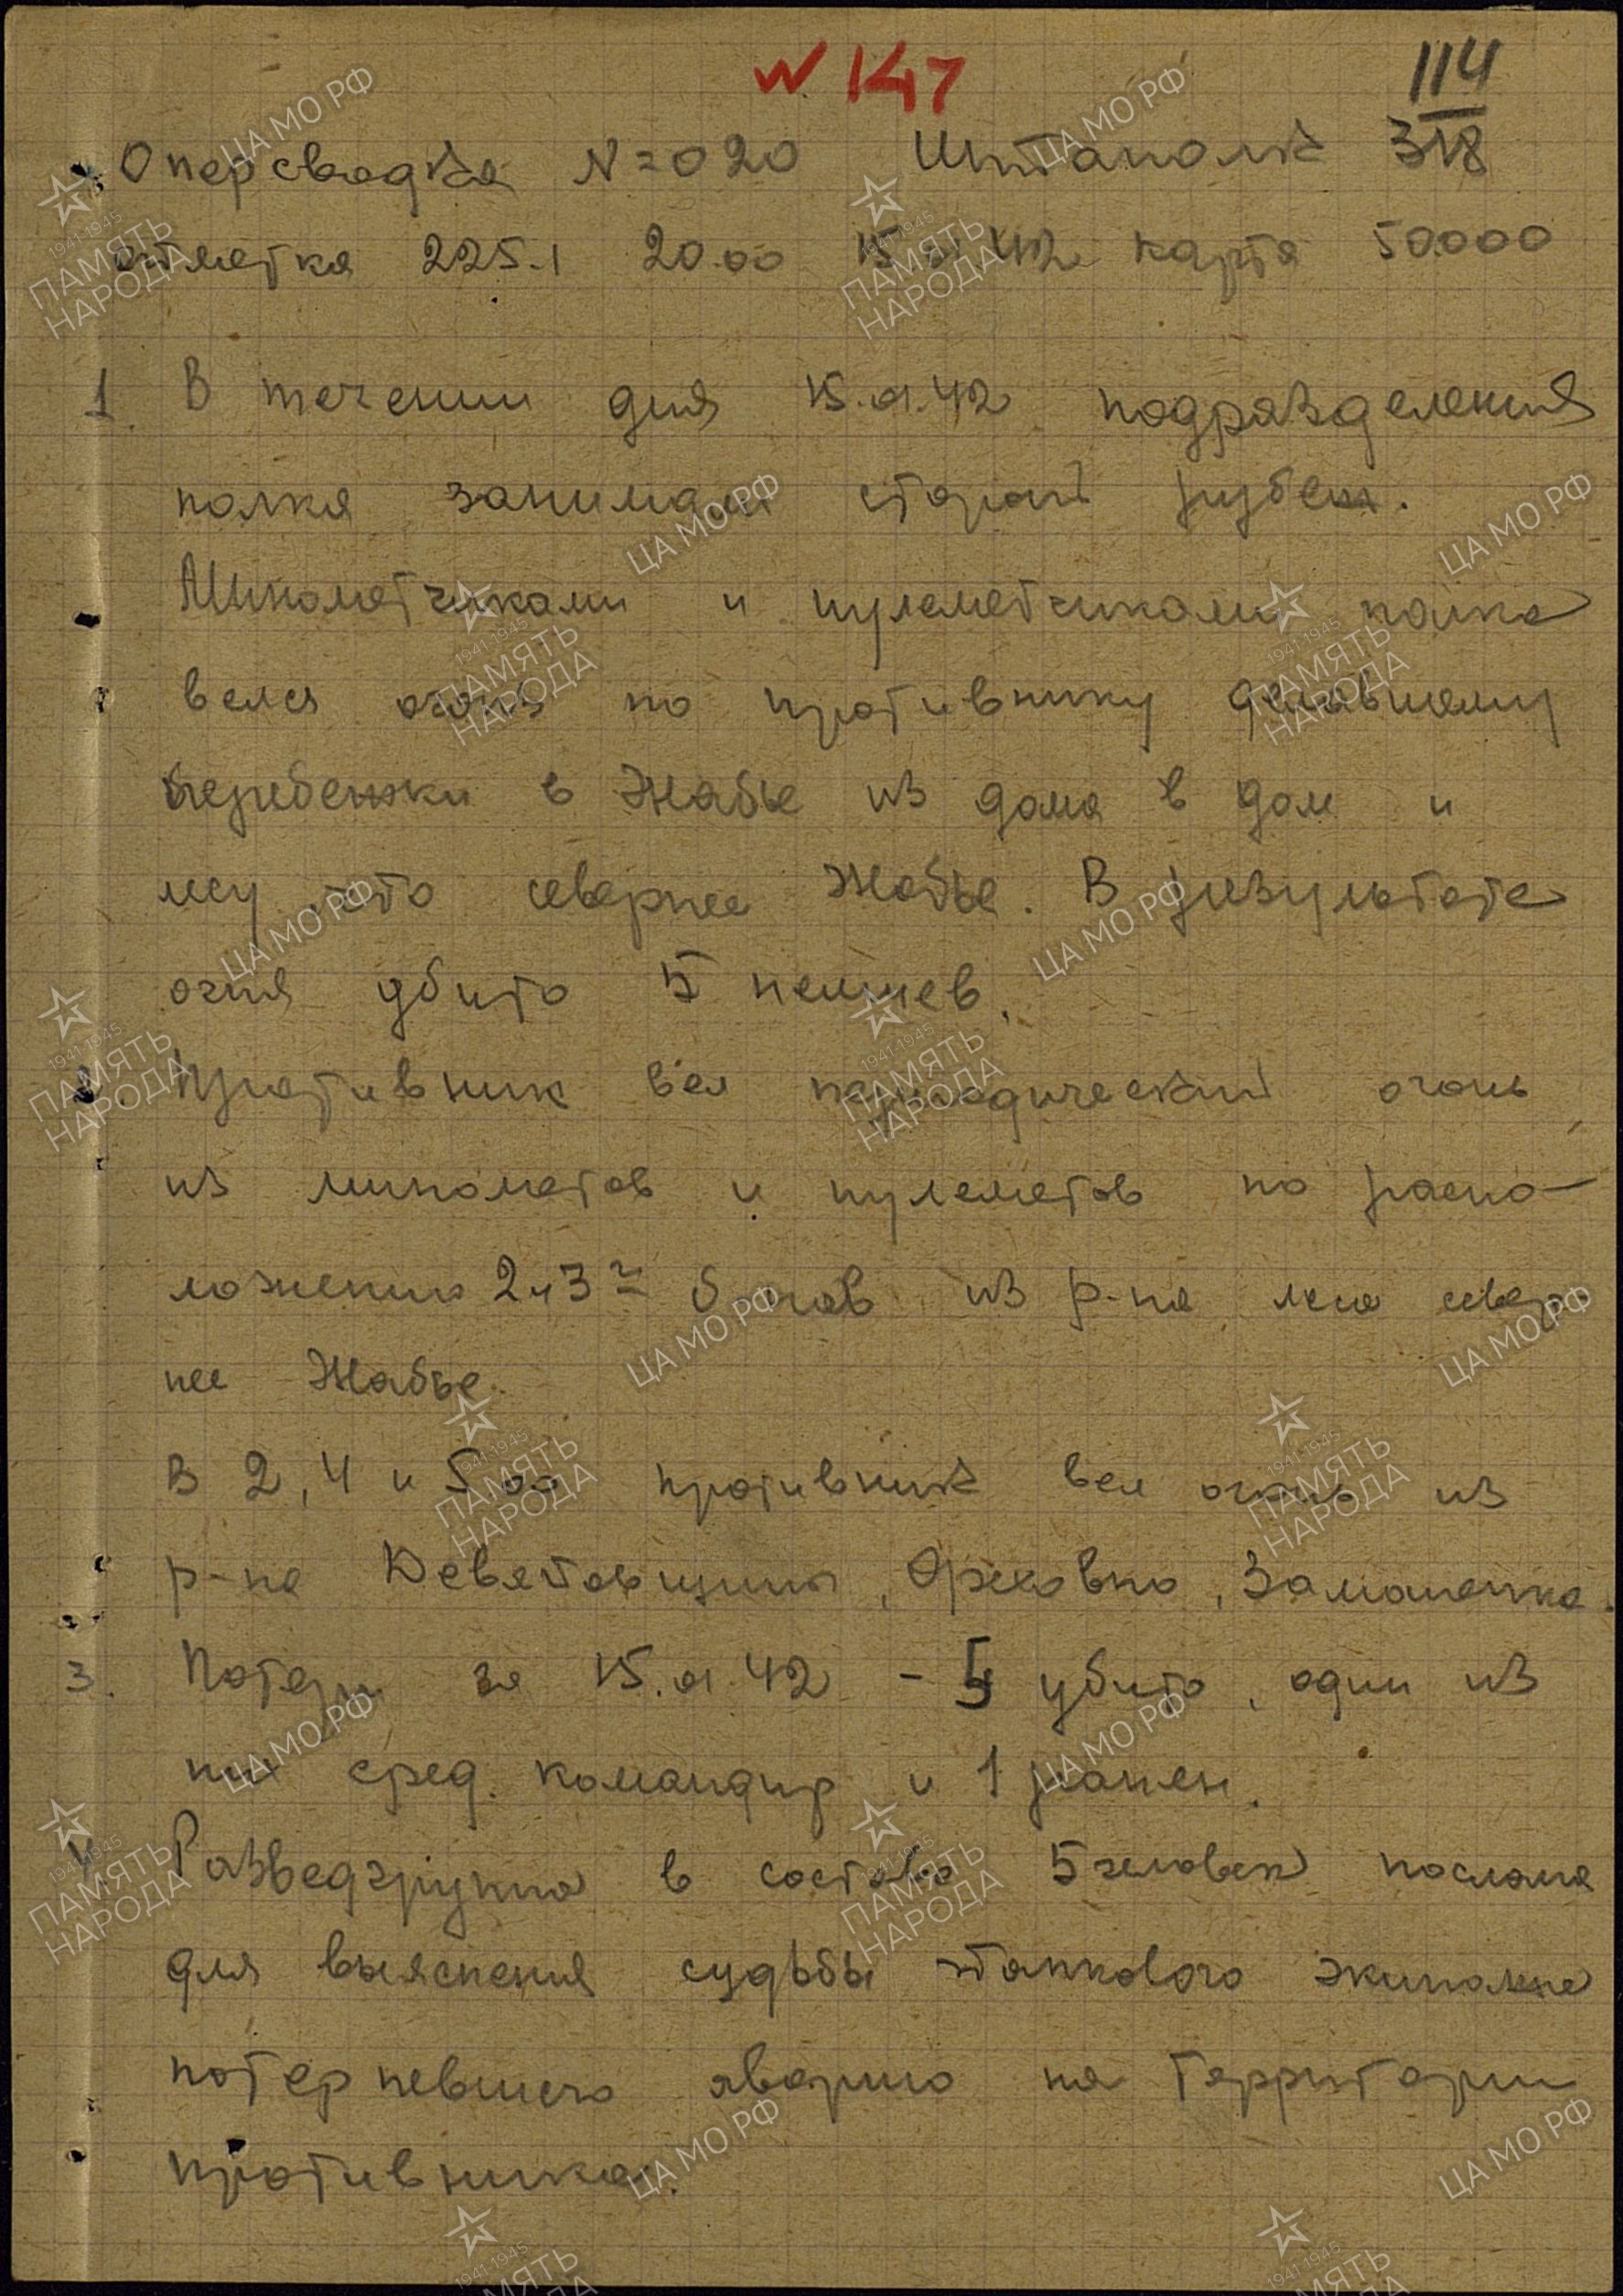 N 147
114
318
Оперсводка N=020 Штаполк
отметка 225.1 20.00 15.01.42 карта 50000
1. В течении дня 15.01.42 подразделения
полка занимали старый рубеж.
Минометчиками и пулеметчиками полка
велся огонь по противнику делавшему
перебежки в Жабье из дома в дом и
лесу что севернее Жабье. В результате
огня убито 5 немцев.
2. Противник вел периодический огонь
из минометов и пулеметов по распо-
ложению 2 и 3го б-нов из р-на леса север
нее Жабье.
В 2, 4 и 5 00 противник вел огонь из
р-на Девятовщины, Ореховно, Замошенка.
3. Потери за 15.01.42 - 5 убито, один из
них сред. командир и 1 ранен.
4. Разведгруппа в составе 5 человек послана
для выяснения судьбы танкового экипажа
потерпевшего аварию на территории
противника.
ЦА МО РФ
1941-1945
ПАМЯТЬ
НАРОДА